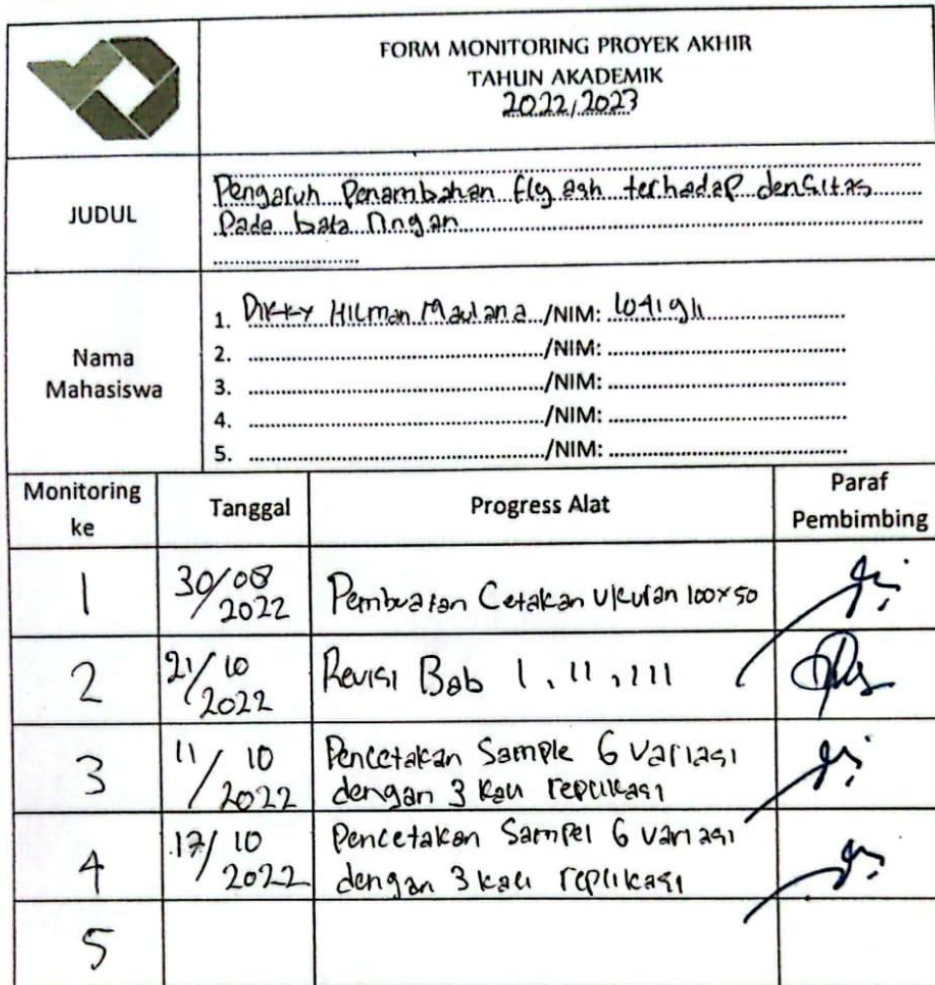 FORM MONITORING PROYEK AKHIR
TAHUN AKADEMIK
2022/2023
JUDUL
Pengaruh Penambahan fly ash terhadap densitas
Pada bata ringan
Nama
Mahasiswa
1. Dikky Hilman Maulana /NIM: 1041911
2. /NIM:
3. /NIM:
4. /NIM:
5. /NIM:
Monitoring
ke
Tanggal
Progress Alat
Paraf
Pembimbing
1
30/08
2022
Pembuatan Cetakan Ukuran 100x50
2
21/10
2022
Revisi Bab 1, 11, 111
3
11/10
2022
Pencetakan Sample 6 Variasi
dengan 3 kali replikasi
4
17/10
2022
Pencetakan Sampel 6 variasi
dengan 3 kali replikasi
5